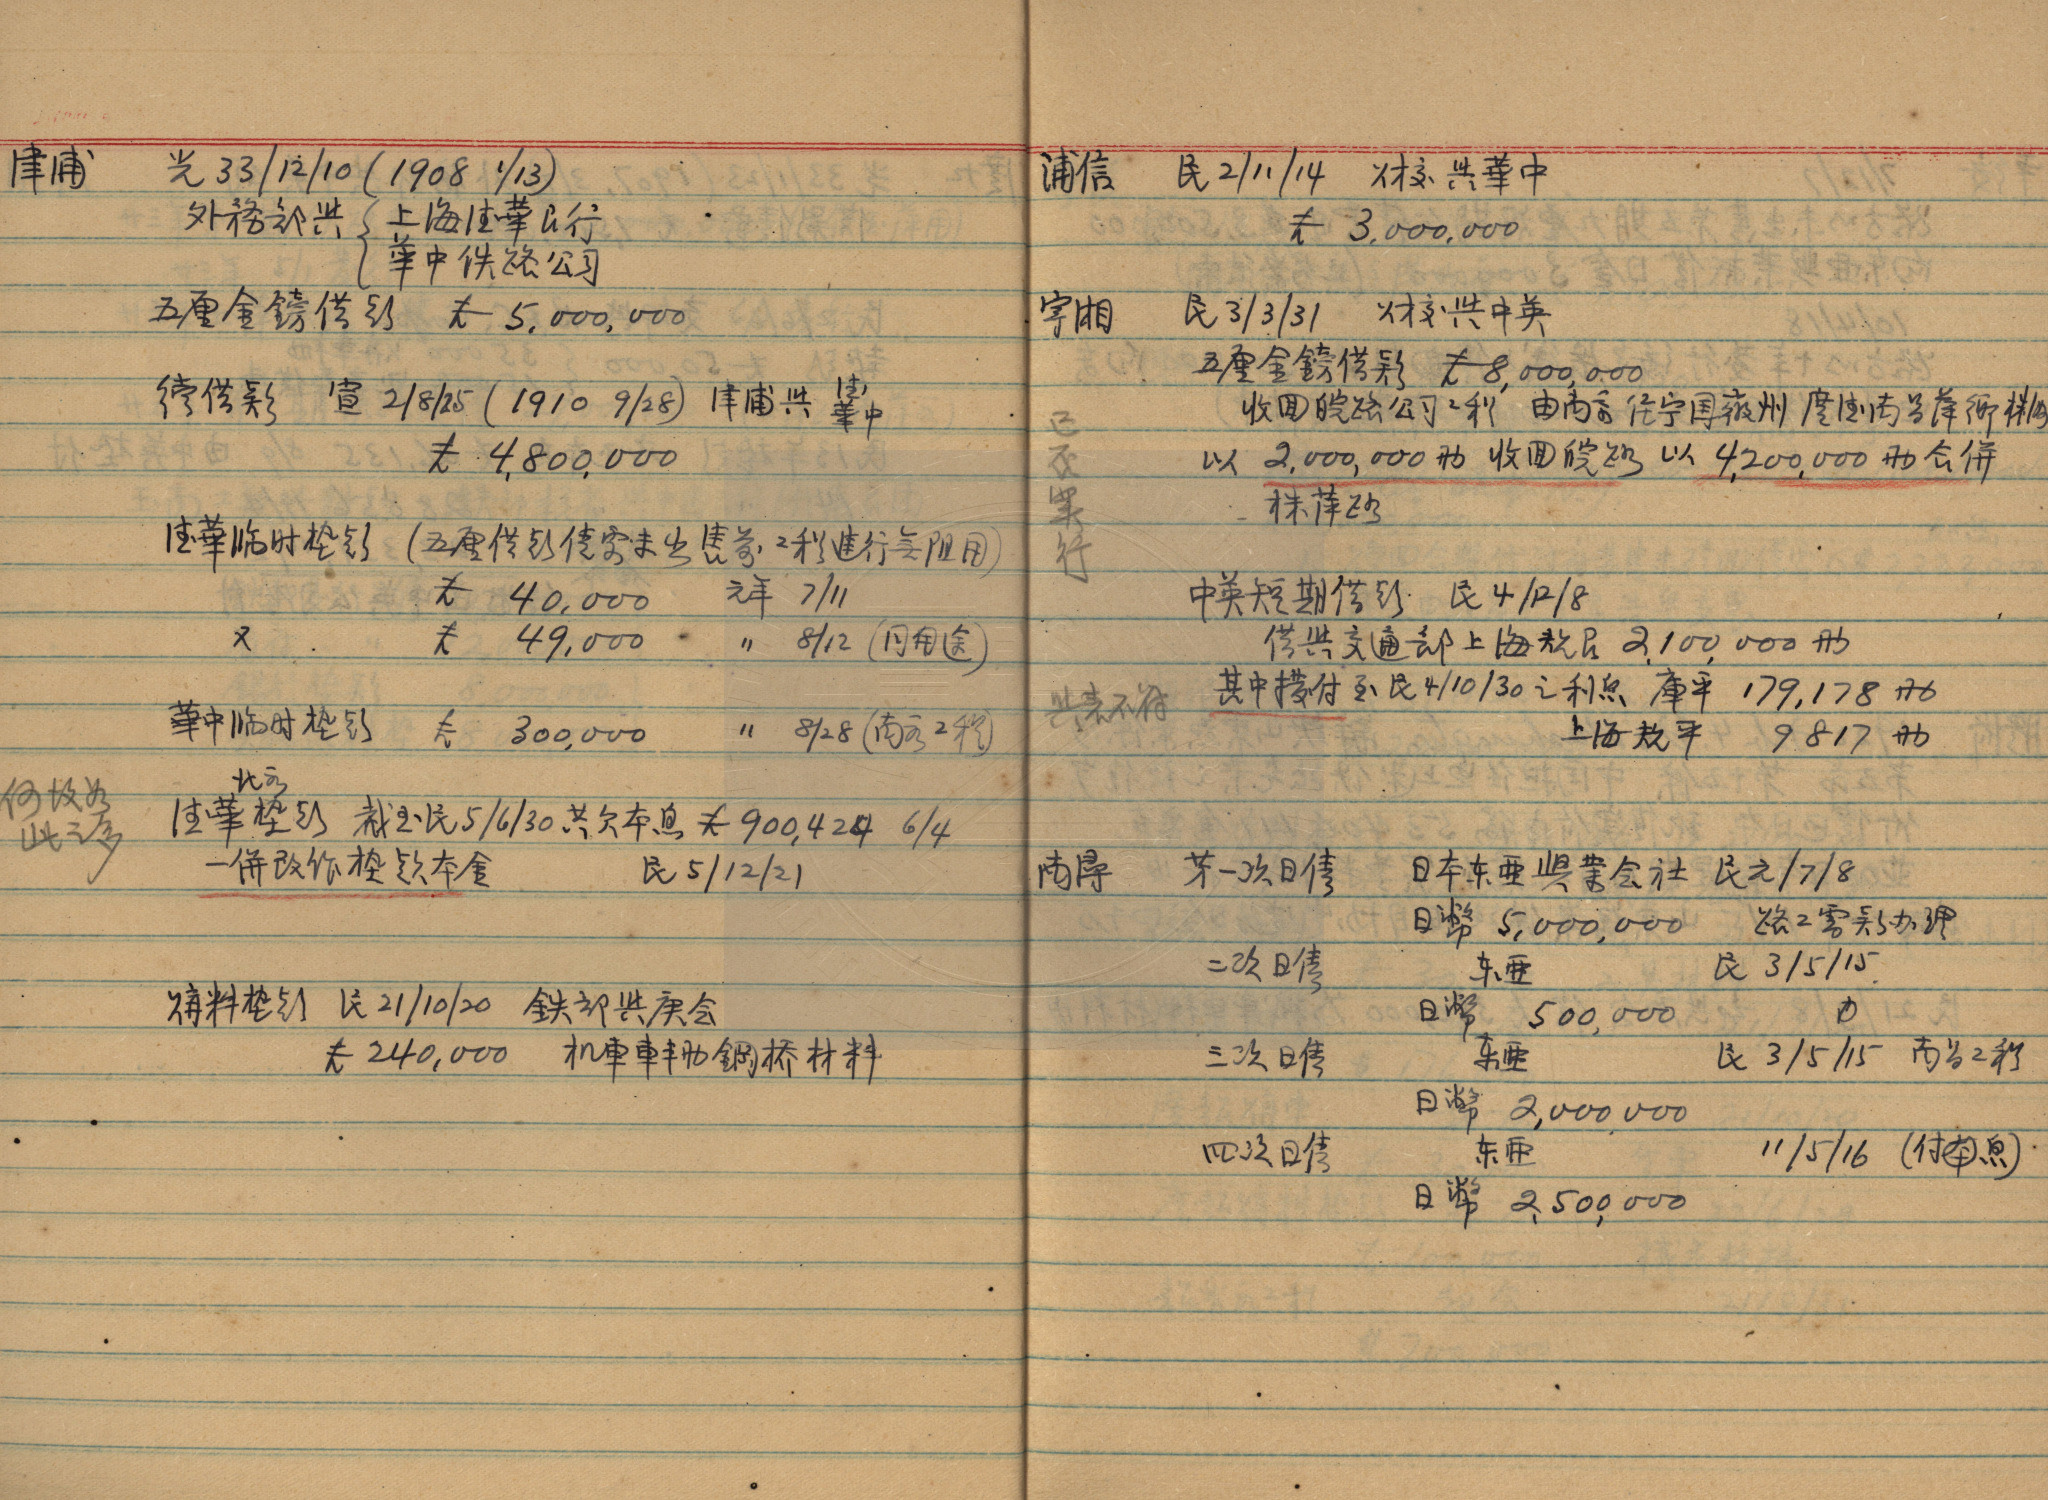 津浦 光33/12/10 (1908 1/13)
外務部與 上海德華银行
華中鉄路公司
五厘金鎊借款 £ 5,000,000
續借款 宣 2/8/25 (1910 9/28) 津浦與 德華 華中
£ 4,800,000
德華临时垫款 (五厘借款债票未出售前工程進行無阻用)
£ 40,000 元年 7/11
又 £ 49,000 〃 8/12 (同用途)
華中临时垫款 £ 300,000 〃 8/28 (南段工程)
北段
德華垫款 截至民5/6/30共欠本息 £ 900,424 6/4
一併改作垫款本金 民5/12/21
何故如
此之多
購料垫款 民21/10/20 鉄部與庚会
£ 240,000 机車車輛鋼桥材料
浦信 民2/11/14 财交與華中
£ 3,000,000
寧湘 民3/3/31 财交與中英
五厘金鎊借款 £ 8,000,000
收回皖路公司工利 由南京 任宁国徽州 度德南昌萍鄉
以 2,000,000 两 收回皖路 以 4,200,000 两合併
株萍路
已不果行
中英短期借款 民4/12/8
借與交通部上海規银 2,100,000 两
其中撥付至民4/10/30之利息 庫平 179,178 两
上海規平 9817 两
與表不符
南潯 第一次日债 日本东亜興業会社 民元/7/8
日幣 5,000,000 路工需款办理
二次日债 东亜 民3/5/15
日幣 500,000
三次日债 东亜 民3/5/15 南昌工程
日幣 2,000,000
四次日债 东亜 11/5/16 (付本息)
日幣 2,500,000